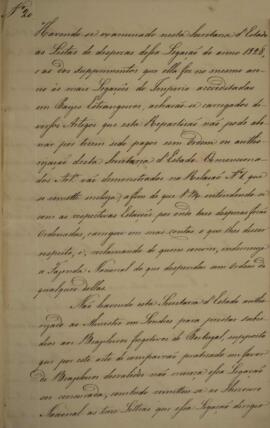 Havendo-se examinado nesta Secretaria d'Estado
as Listas de despezas dessa Legação do anno 1828,
e as dos suppprimentos que ella fez no mesmo an-
no às mais Legações do Imperio acreditadas
em Paizes Estrangeiros, acharão-se carregados di-
versos Artigos que esta Repartição não pode abo-
nar por terem sido pagos sem Ordem ou autho-
risação desta Secretaria d'Estado. Os menciona-
dos Art.os vão demonstrados na Relação N.º 1, que
se remette inclusa, afim de que V.M. entendendo-se
com as respectivas Estações por onde taes despezas forão
Ordenadas, carregue em suas contas o que lhes disser
respeito, e, reclamando de quem convier, indemnize
a Fazenda Nacional do que despendeu sem Ordem de
qualquer dellas.
Não havendo esta Secretaria d'Estado autho-
risado ao Ministro em Londres para prestar subsi-
dios aos Brazileiros fugitivos de Portugal, supposto
que por este acto de compaixão praticado em favor
de Brazileiros desvalidos não mereça essa Legação
ser censurada, comtudo remetteu-se ao Thesouro
Nacional as tres Lettras que essa Legação dirigio